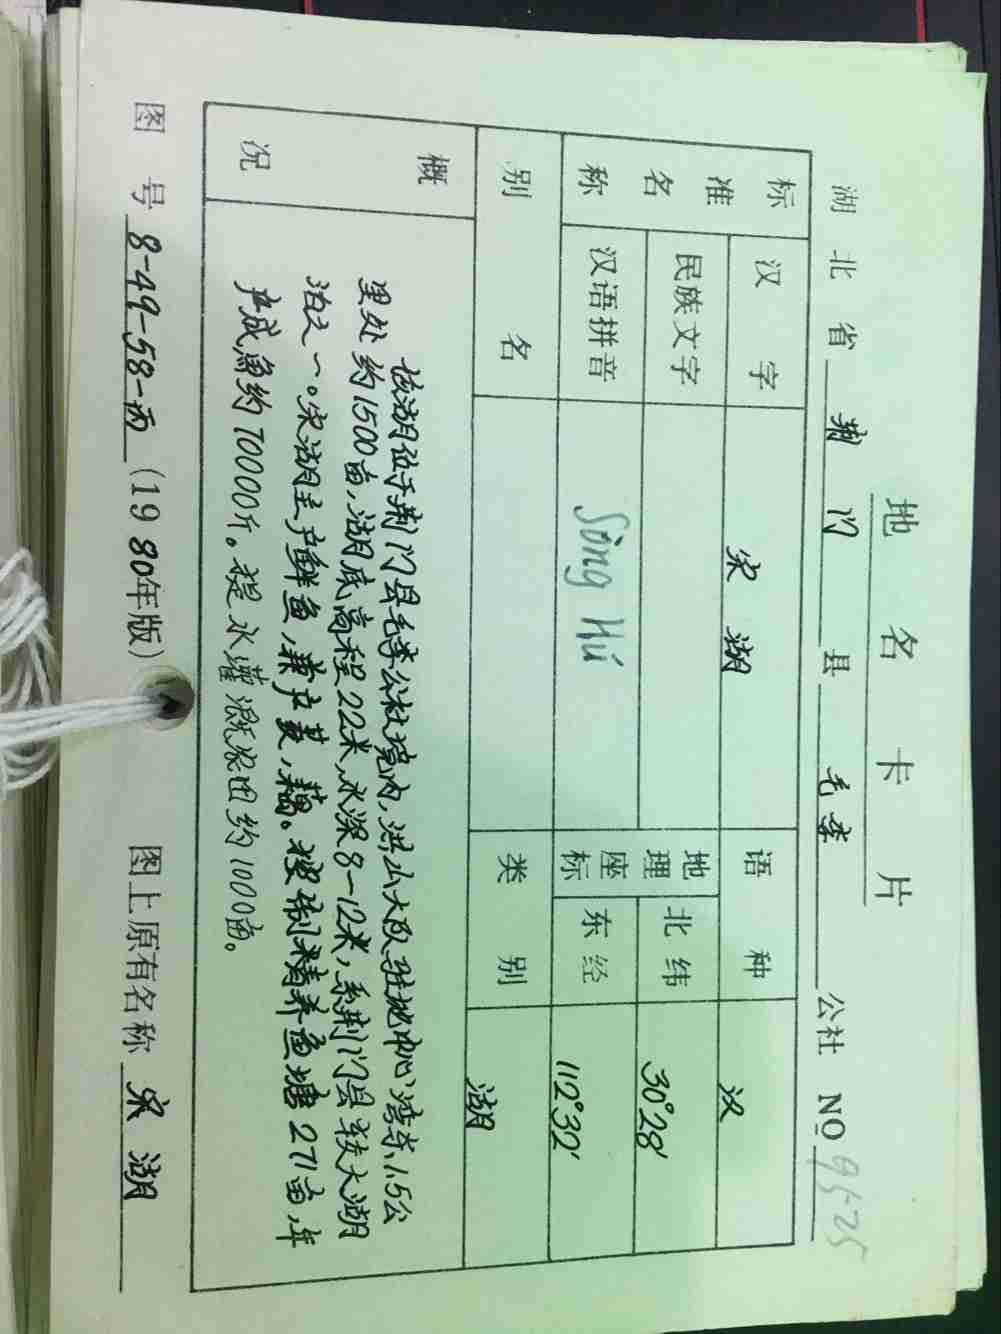 地名卡片
湖北省 荆门 县 毛李 公社 NO 9525
标准名称 汉字 宋湖 语种 汉
民族文字 地理座标 北纬 30°28′
汉语拼音 Sòng Hú 东经 112°32′
别名 类别 湖
概况
该湖位于荆门县毛李公社境内,洪山大队驻地中心湾东1.5公
里处约1500亩,湖底高程22米,水深8-12米,系荆门县较大湖
泊之一。宋湖主产鲜鱼,兼产菱,藕。控制精养鱼塘271亩,年
产成鱼约70000斤。提水灌溉农田约1000亩。
图号 8-49-58-丙 (1980年版) 图上原有名称 宋湖